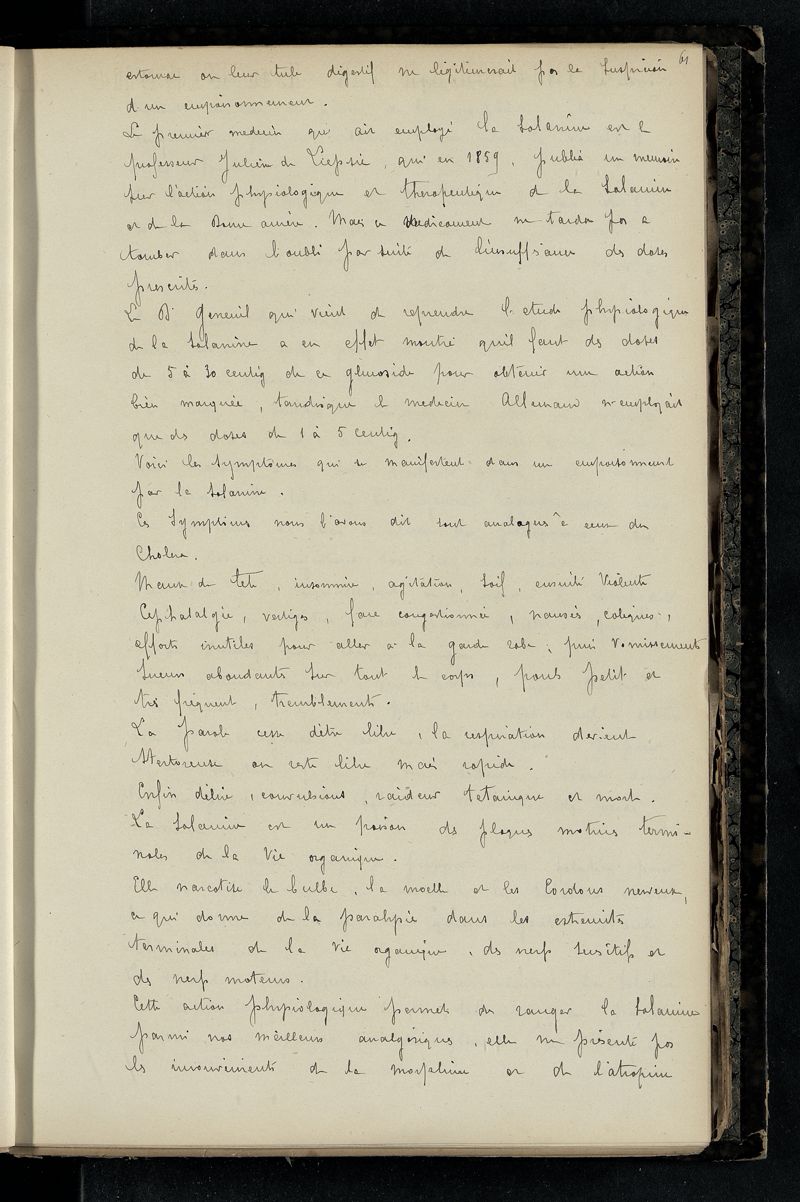 61
estomac ou leur tube digestif ne légitimerait pas le suspicion
d'un empoisonnement.
Le premier medecin qui ait employé la Solanine est le
professeur Julien de Liepsie, qui en 1859, publia un memoire
sur l'action physiologique et therapeutique de la Solanine
et de la Douce amère. Mais ce medicament ne tarda pas a
tomber dans l'oubli par suite de l'insuffisance des doses
prescrites.
Le Dr Geneuil qui vient de reprendre l'etude physiologique
de la Solanine a en effet montré qu'il faut des doses
de 5 à 30 centig de ce glucoside pour obtenir une action
bien marquée, tandisque le medecin Allemand n'employait
que des doses de 1 à 5 centig.
Voici les symptômes qui se manifestent dans un empoisonnement
par la Solanine.
Ces symptômes nous l'avons dit sont analogues à ceux du
Cholera.
Maux de tete, insomnie, agitation, soif, ensuite violente
Cephalalgie, vertiges, face congestionnée, nausées, coliques,
efforts inutiles pour aller à la garde robe, puis vomissements
sueurs abondantes sur tout le corps, pouls petit et
très frequent, tremblements.
La parole cesse d'être libre, la respiration devient
stertoreuse ou reste libre mais rapide.
Enfin délire, convulsions, raideur tetanique et mort.
La Solanine est un poison des plaques motrices termi-
nales de la vie organique.
Elle narcotise le bulbe, la moelle et les Cordons nerveux,
ce qui donne de la paralysie dans les extremités
terminales de la vie organique, des nerfs sensitifs et
des nerfs moteurs.
Cette action physiologique permet de ranger la Solanine
parmi nos meilleurs analgésiques, elle ne présente pas
les inconvénients de la morphine et de l'atropine